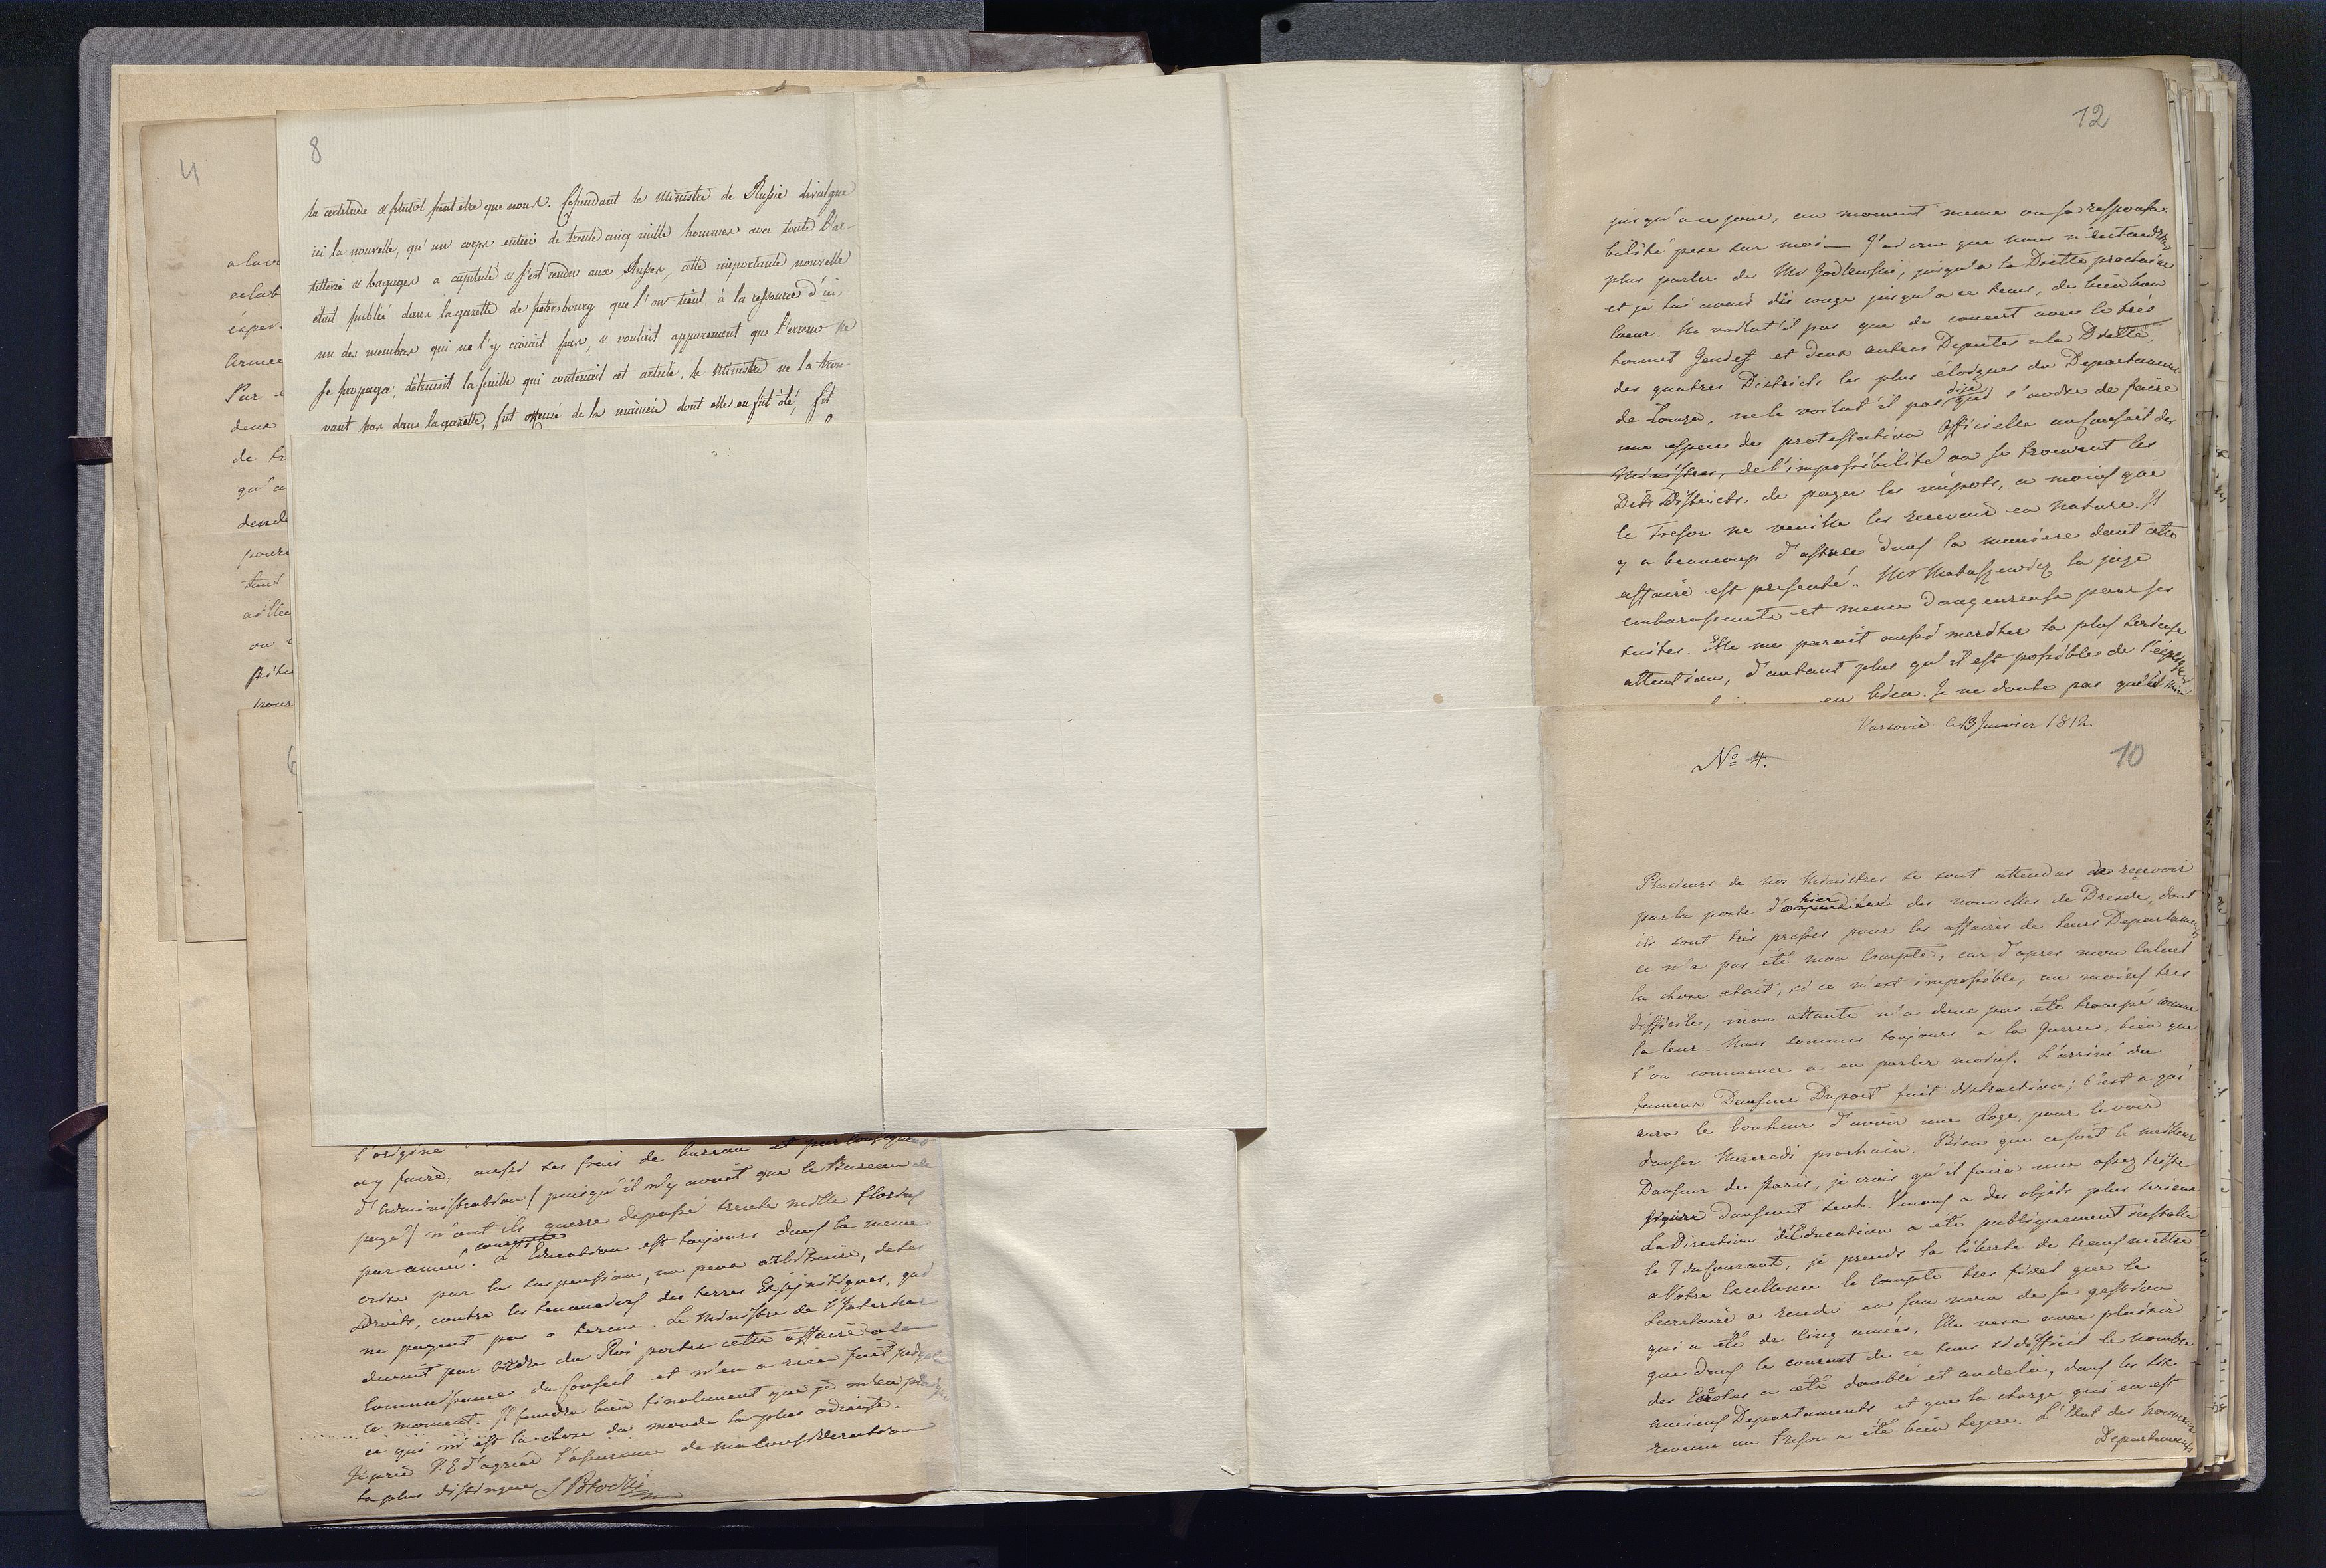 4
a la
eclab
Armée
Par
deux
de tr
qu'on
pour
tant
ou
nous
8
la certitude & plutôt peut être que nous. Cependant le Ministre de Russie divulgue
ici la nouvelle, qu'un corps entier de trente cinq mille hommes avec toute l'ar-
tillerie & bagages a capitulé & s'est rendu aux Russes, cette importante nouvelle
était publiée dans la gazette de petersbourg que l'on tient à la ressource d'ici,
un des membres qui ne l'y croiait pas, & voulait apparement que l'erreur ne
se propaga; détruisit la feuille qui contenait cet article, le Ministre ne la trou-
vant pas dans la gazette, fut offensé de la manière dont elle en fut ôté, fit
6
l'origine
a y faire, aussi les frais de bureau et par conséquent
d'administration (puisqu'il n'y avait que le Bureau de
payé) n'ont ils guerre depassé trente mille florins
par année. L'Education est toujours dans la meme
crise par la suspension, un peux arbitraire, de ses
Droits, contre les tenanciers des terres Exjesuitiques, qui
ne payent pas a terme. Le Ministre de l'Interieur
devait par ordre du Roi porter cette affaire a la
connaissance du Conseil et n'en a rien fait jusqu'a
ce moment. Il faudra bien finalement que je m'en plaigne
ce qui m'est la chose du monde la plus odieuse.
Je prie V.E. d'agréer l'assurance de ma Consideration
la plus distinguée S Potocki
12
jusqu'a ce jour, au moment meme ou sa responsa-
bilité pese sur moi — J'ai crue que nous n'entendrons
plus parler de Mr Godlewski, jusqu'a la Diette prochaine
et je lui avais dis conge jusqu'a ce tems, de bien bon
coeur. Ne voilat'il pas que de concert avec le très
honnet Gendes et deux autres Deputés a la Diette,
des quatres Districts les plus éloignes du Departement
de Lomza, ne le voilat'il pas dije qui s'avise de faire
une espece de protestation Officielle au Conseil des
Ministres, de l'impossibilité ou se trouvent les
Dits Districts, de payer les impots, a moins que
le Tresor ne veuille les recevoir en nature. Il
y a beaucoup d'astuce dans la maniere dont cette
affaire est presenté. Mr Matuszewicz la juge
embarassante et meme dangereuse pour ses
suites. Elle me parait aussi meriter la plus serieuse
attention, d'autant plus qu'il est possible de
en bien. Je ne doute pas qu'il
Varsovie le 13 Janvier 1812.
No 4.
10
Plusieurs de nos Ministres se sont attendus de recevoir
par la poste d'hier des nouvelles de Dresde, dont
ils sont très pressés pour les affaires de leurs Departements
ce n'a pas été mon compte, car d'apres mon calcul
la chose etait, si ce n'est impossible, au moins tres
difficile, mon attante n'a donc pas été trompé comme
la leur. Nous sommes toujours a la guerre, bien que
l'on commence a en parler moins. L'arrivé du
fameux Danseur Duport fait distraction; c'est a qui
aura le bonheur d'avoir une loge, pour le voir
danser Mercredi prochain. Bien que ce soit le meilleur
Danseur de Paris, je crois qu'il faira une assez triste
figure dansant seul. Venons a des objets plus serieux
La Direction d'Education a été publiquement installé
le 7 du Courant, je prends la liberté de transmettre
a Votre Excellence le compte tres fidel que le
Secretaire a rendu en son nom de sa gestion
qui a été de cinq années, Elle vera avec plaisir
que dans le courant de ce tems si difficil le nombre
des Ecoles a été doublé et audela, dans les six
anciens Departements et que la charge qui en est
revenue au Tresor a été bien legere. L'Etat des nouveaux
Departements